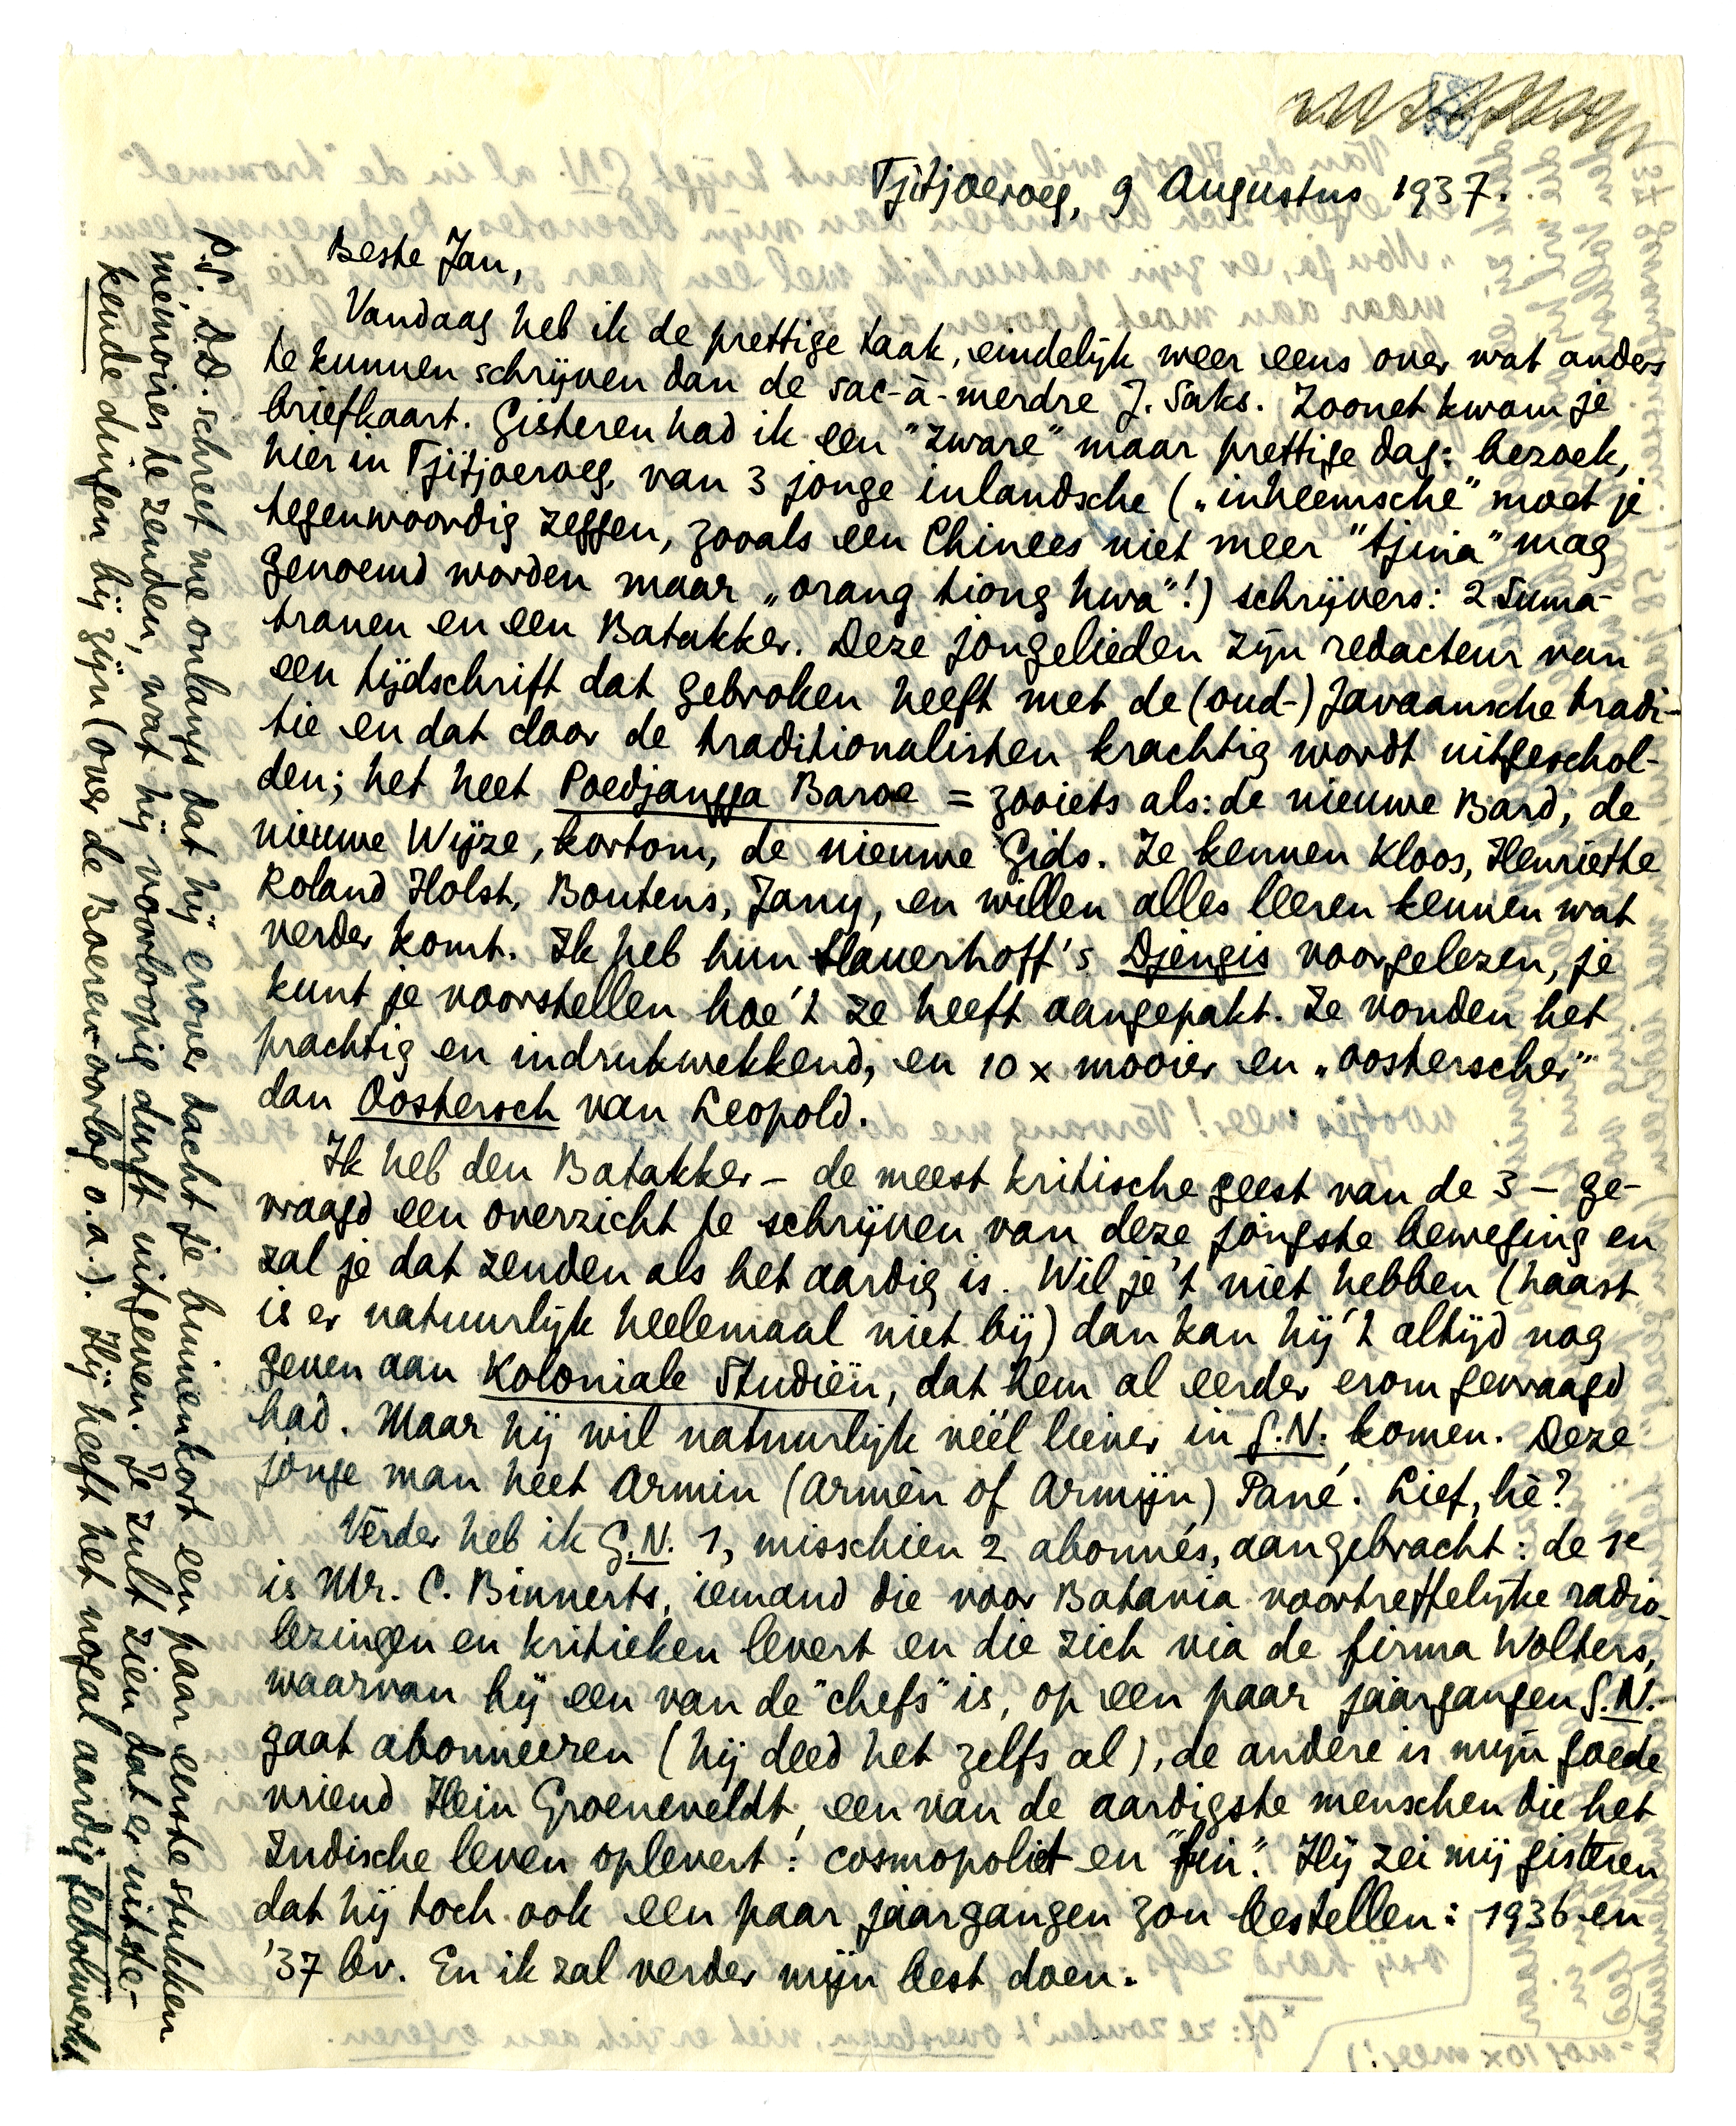 Tjitjoeroeg, 9 Augustus 1937.
Beste Jan,
Vandaag heb ik de prettige taak, eindelijk weer eens over wat anders
te kunnen schrijven dan de sac-à-merdre J. Saks. Zoonet kwam je
briefkaart. Gisteren had ik een "zware" maar prettige dag: bezoek,
hier in Tjitjoeroeg, van 3 jonge inlandsche („inheemsche" moet je
tegenwoordig zeggen, zooals een Chinees niet meer "tjina" mag
genoemd worden maar „orang tiong hwa"!) schrijvers: 2 Suma-
tranen en een Batakker. Deze jongelieden zijn redacteur van
een tijdschrift dat gebroken heeft met de (oud-) Javaansche tradi-
tie en dat door de traditionalisten krachtig wordt uitgeschol-
den; het heet Poedjangga Baroe = zooiets als: de nieuwe Bard, de
nieuwe Wijze, kortom, de nieuwe Gids. Ze kennen Kloos, Henriëtte
Roland Holst, Boutens, Jany, en willen alles leeren kennen wat
verder komt. Ik heb hun Slauerhoff's Djengis voorgelezen, je
kunt je voorstellen hoe 't ze heeft aangepakt. Ze vonden het
prachtig en indrukwekkend, en 10 x mooier en „oosterscher"
dan Oostersch van Leopold.
Ik heb den Batakker – de meest kritische geest van de 3 – ge-
vraagd een overzicht te schrijven van deze jongste beweging en
zal je dat zenden als het aardig is. Wil je 't niet hebben (haast
is er natuurlijk heelemaal niet bij) dan kan hij 't altijd nog
geven aan Koloniale Studiën, dat hem al eerder erom gevraagd
had. Maar hij wil natuurlijk véél liever in G.N. komen. Deze
jonge man heet Armin (Armèn of Armijn) Pané. Lief, hè?
Verder heb ik G.N. 1, misschien 2 abonnés, aangebracht: de 1e
is Mr. C. Binnerts, iemand die voor Batavia voortreffelijke radio-
lezingen en kritieken levert en die zich via de firma Wolters,
waarvan hij een van de "chefs" is, op een paar jaargangen G.N.
gaat abonneeren (hij deed het zelfs al), de andere is mijn goede
vriend Hein Groeneveldt, een van de aardigste menschen die het
Indische leven oplevert: cosmopoliet en "fin". Hij zei mij gisteren
dat hij toch ook een paar jaargangen zou bestellen: 1936 en
'37 bv. En ik zal verder mijn best doen.
P.S. D.D. schreef me onlangs dat hij erover dacht je binnenkort een paar eerste stukken
mémoires te zenden, wat hij voorloopig durft uitgeven. Je zult zien dat er uitste-
kende dingen bij zijn (over de Boeren-oorlog o.a.). Hij heeft het nogal aardig geboekwerkt